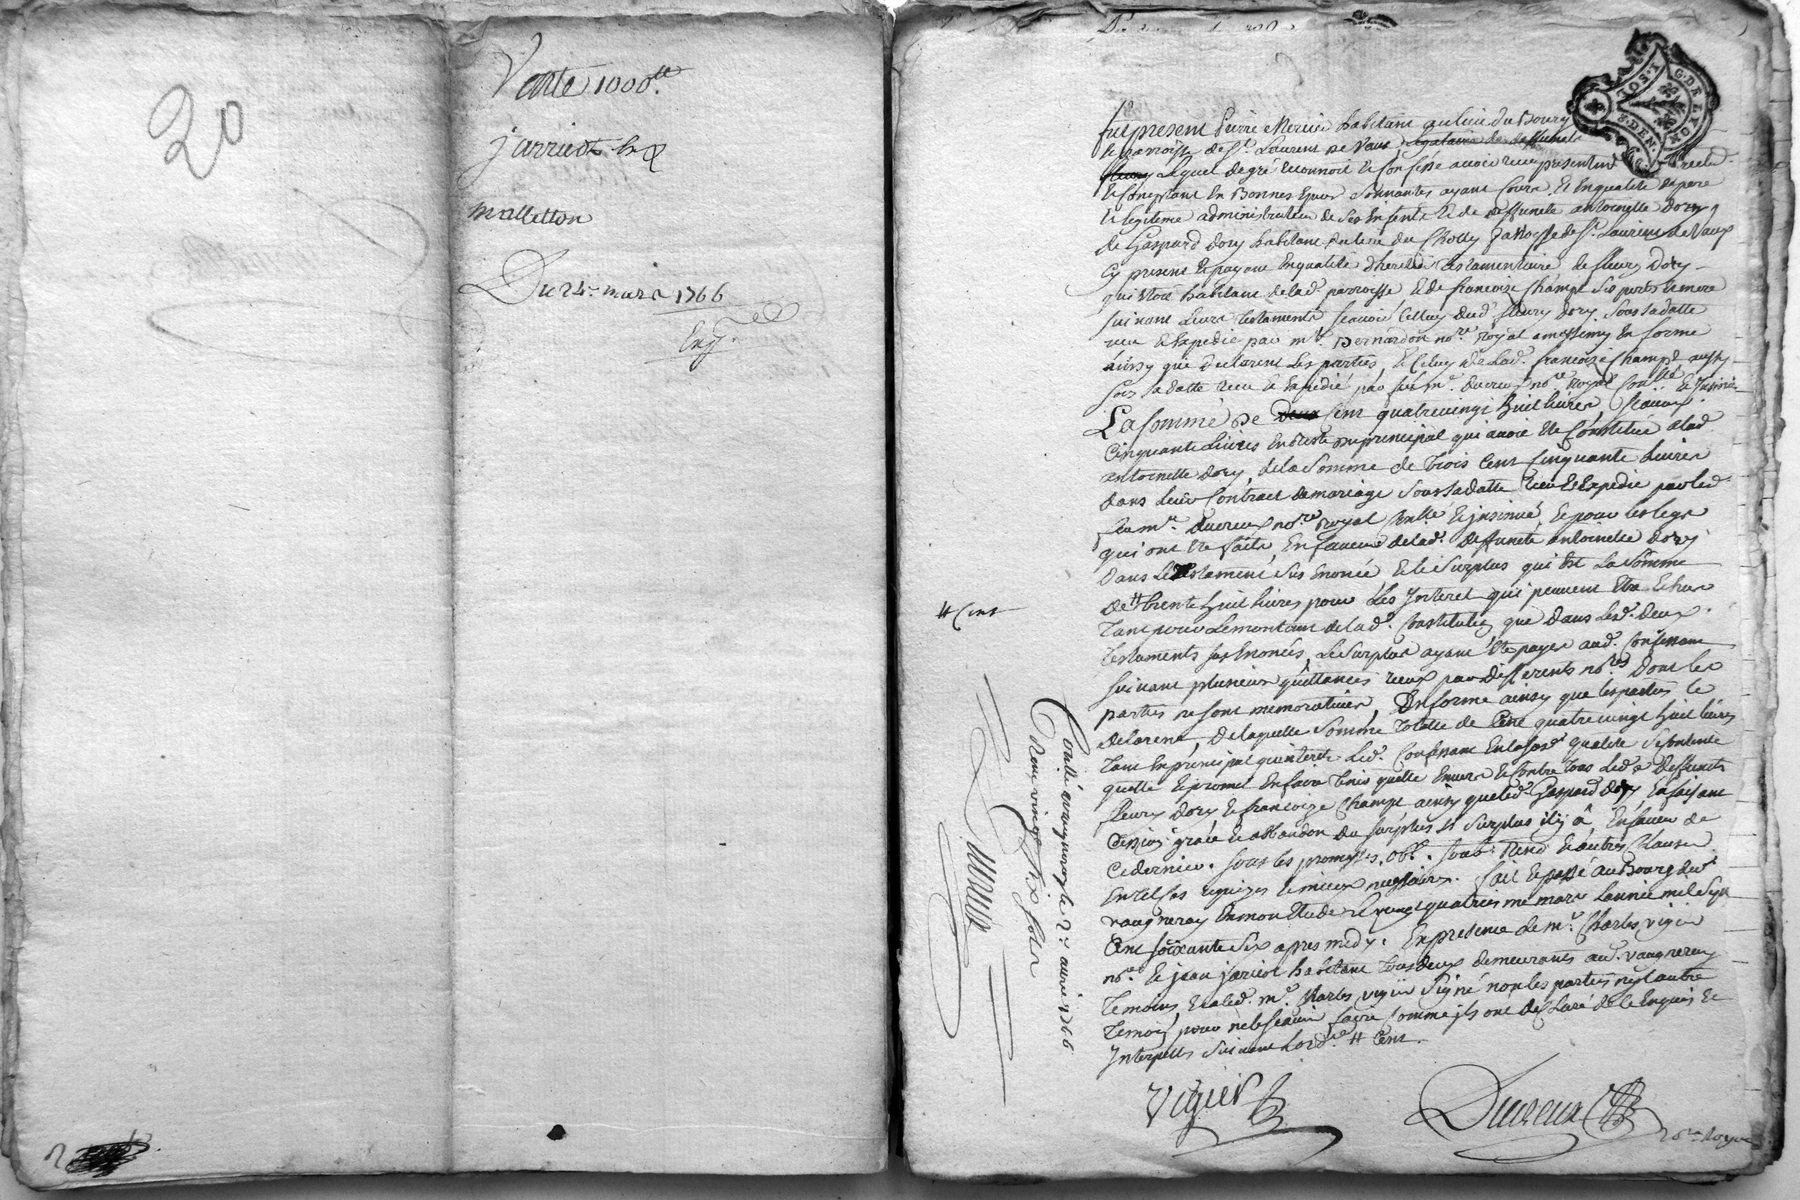 20
Vente 1000ᵗᵗ.
jarriot
malletton
Du 24ᵉ. mars 1766
Exp.
G. DE LYON
I. SOL
8. DEN.
fut present Pierre Mercier habitant au lieu du Bourg
de parroisse de Sᵗ. Laurent de Vaux
Lequel de gré reconnoit et confesse avoir receu presentement
et comptant en Bonnes Especes sonnantes ayant cours, et en qualité de pere
et legitime administrateur de ses enfents et de deffunete antoinette Dory
de Gaspard dory habitant au lieu du Cholly parroisse de Sᵗ. Laurent de Vaux
cy present et payant en qualité d'heritier testamentaire de fleury Dory
qui etoit habitant de lad. parroisse et de francoize Champt ses pere et mere
suivant leurs testaments scavoir celluy dud. fleury dory sous sa datte
receu et expedié par mᵉ. Bernardon noʳᵉ. royal a messimy en forme
ainsy que declarent les parties, et celuy de lad. francoize Champt aussy
sous sa datte receu et expedié par feu mᵉ. ducreux noʳᵉ royal
La somme de cent quatrevingt huit livres, scavoir
cinquante livres en reste du principal qui avoit eté constitué a lad.
antoinette dory, de la somme de trois cent cinquante livres
dans leur contract de mariage sous sa datte receu et expedié par led.
feu mᵉ. ducreux noʳᵉ royal controllé et insinué, et pour les legs
qui ont eté faits en faveur de lad. deffuncte antoinette dory
dans le testament sus enoncé et le surplus qui est la somme
de # trente huit livres pour les interet qui peuvent etre echus
tant pour le montant de lad. constitution que dans lesd. deux
testaments sus enoncés, le surplus ayant eté payer aud. confessant
suivant plusieurs quittances receux par differents noʳᵉˢ dont les
parties ne sont memoratives, en forme ainsy que les parties le
declarent, de laquelle somme totalle de cent quatrevingt huit livres
tant en principal qu'interets led. confessant en lasusdᵉ qualité se contente
quitte et promet en faire tenir quitte envers et contre tous lesd. deffuncts
fleury dory et francoize Champt ainsy que led. Gaspard dory en faisant
cession grace et abbandon du surplus si surplus il y a en faveur de
ce dernier. sous les promesses, obl. soub. rend. et autres clauses
en tel cas requizes et mieux necessaires. fait et passé au Bourg de
vaugneray en mon etude le vingt quatrieme mars l'année mil sept
cent soixante six apres midy. En presence de mᵉ. Charles vigier
noʳᵉ. et jean jariot habitant tous deux demeurants aud. vaugneray
temoins, et a led. mᵉ. Charles vigier signé non les parties ny l'autre
temoin pour ne le scavoir faire comme ils ont declaré de ce enquis et
interpellés suivant l'ordᶜᵉ # cent.
# cent
Conllé a vaugneray le 2ᵉ avril 1766
Receu vingt six sols
Vigier
Ducreux
noʳᵉ Royal